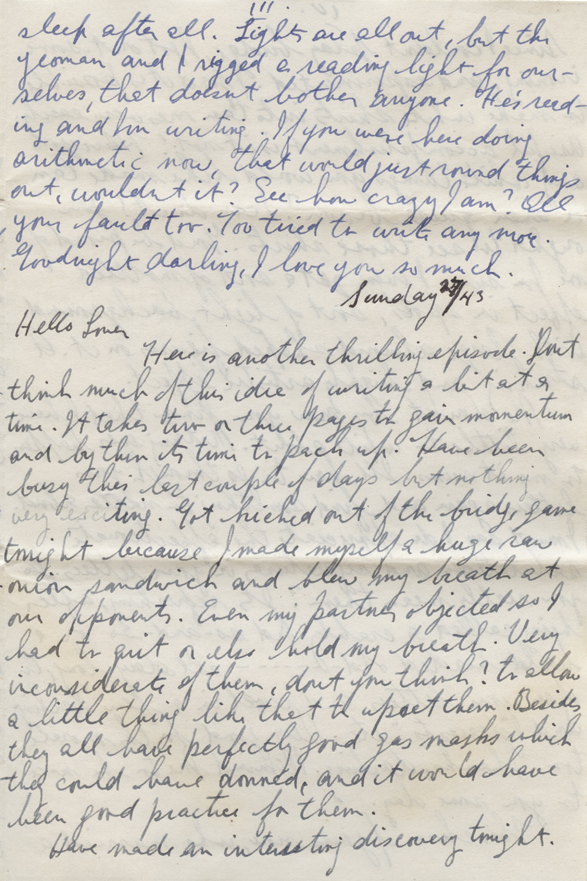 !!!
sleep after all. Lights are all out, but the
yeoman and I rigged a reading light for our-
selves, that doesnt bother anyone. He's read-
ing and Im writing. If you were here doing
arithmetic now, that would just round things
out, wouldnt it? See how crazy I am? All
your fault too. Too tired to write any more.
Goodnight darling, I love you so much.
Sunday /43
Hello Lover
Here is another thrilling episode. Dont
think much of this idea of writing a bit at a
time. It takes two or three pages to gain momentum
and by then its time to pack up. Have been
busy this last couple of days but nothing
very exciting. Got kicked out of the bridge game
tonight because I made myself a huge raw
onion sandwich and blew my breath at
our opponents. Even my partner objected so I
had to quit or else hold my breath. Very
inconsiderate of them, dont you think? to allow
a little thing like that to upset them. Besides
they all have perfectly good gas masks which
they could have donned, and it would have
been good practice for them.
Have made an interesting discovery tonight.